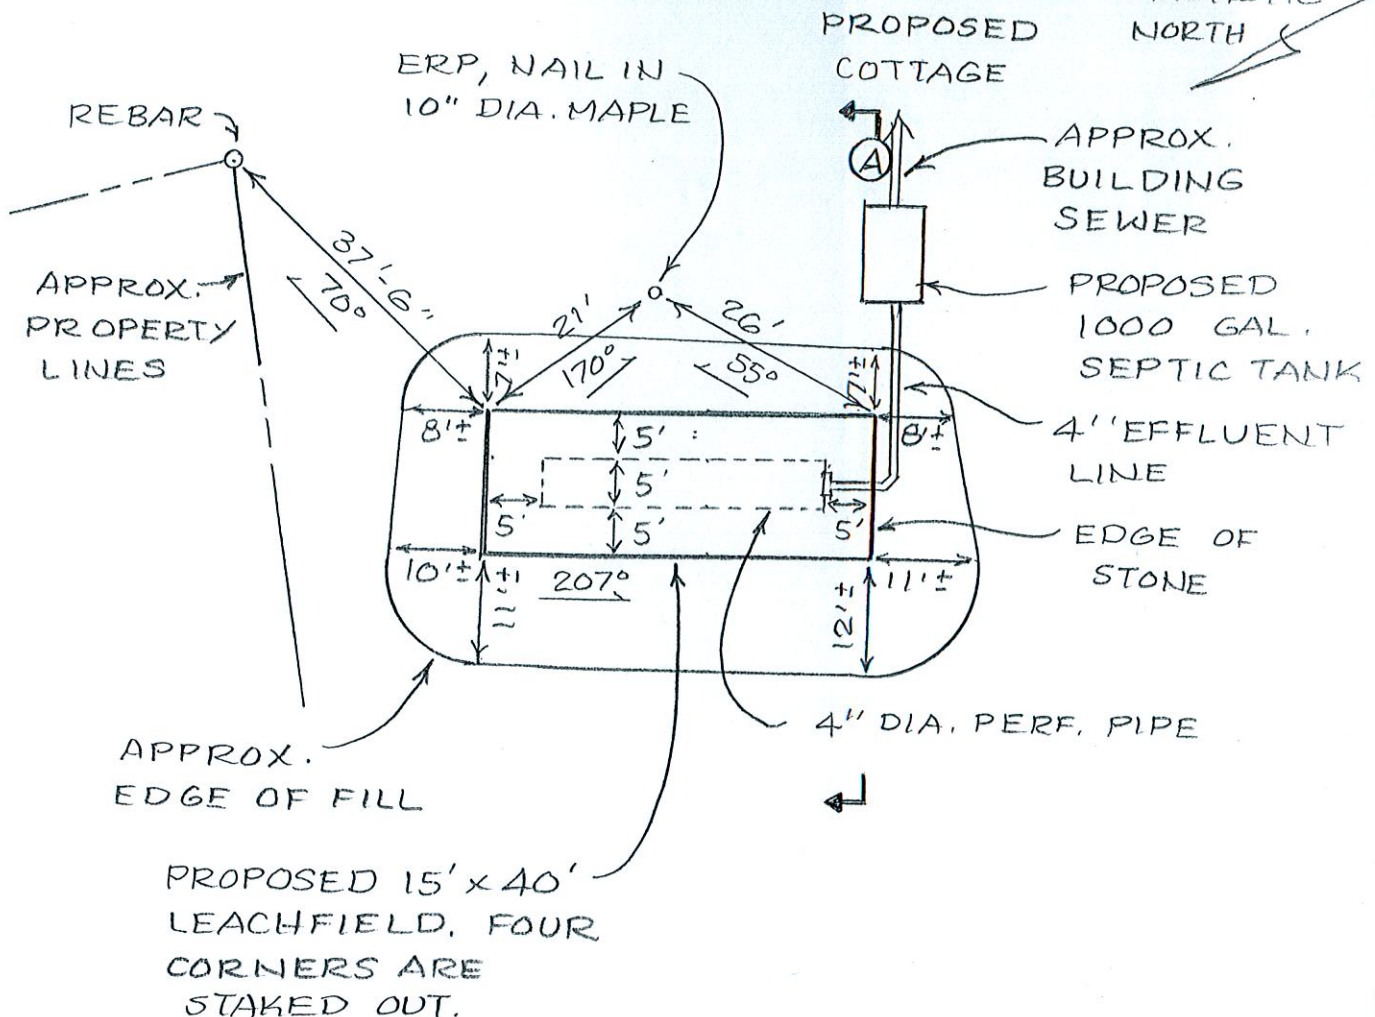 PROPOSED
COTTAGE
NORTH
ERP, NAIL IN
10" DIA. MAPLE
REBAR
A
APPROX.
BUILDING
SEWER
37'-6"
70°
APPROX.
PROPERTY
LINES
21'
170°
26'
55°
PROPOSED
1000 GAL.
SEPTIC TANK
7'±
7'±
8'±
8'±
4" EFFLUENT
LINE
5'
5'
5'
5'
5'
EDGE OF
STONE
10'±
11'±
207°
11'±
12'±
4" DIA. PERF. PIPE
APPROX.
EDGE OF FILL
PROPOSED 15' x 40'
LEACHFIELD. FOUR
CORNERS ARE
STAKED OUT.